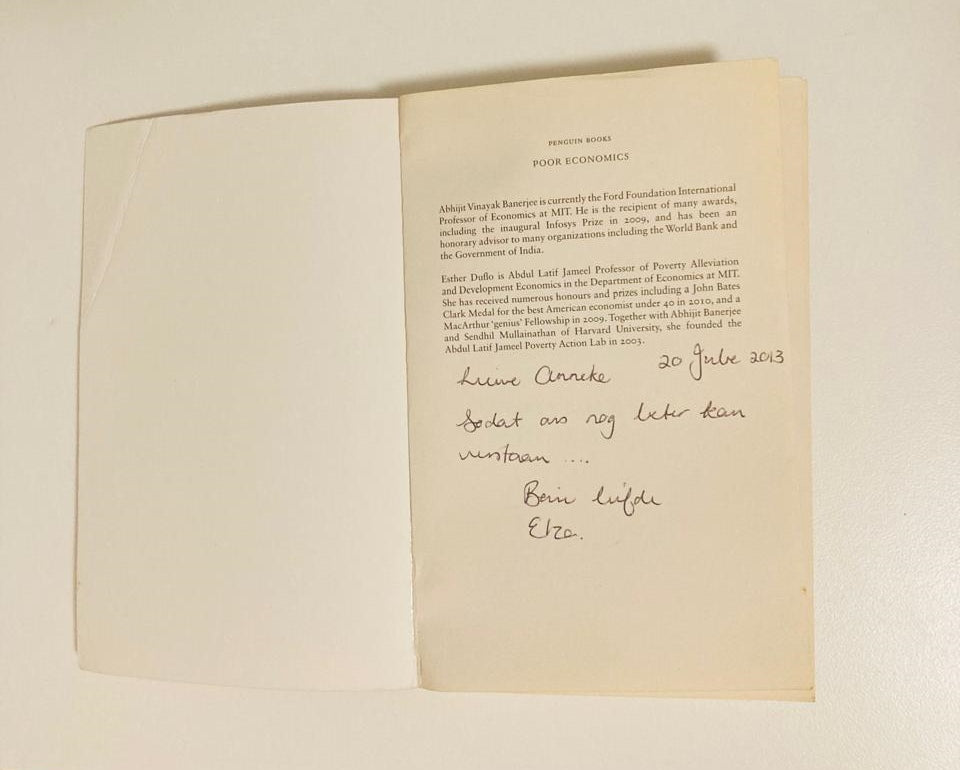 PENGUIN BOOKS
POOR ECONOMICS
Abhijit Vinayak Banerjee is currently the Ford Foundation International
Professor of Economics at MIT. He is the recipient of many awards,
including the inaugural Infosys Prize in 2009, and has been an
honorary advisor to many organizations including the World Bank and
the Government of India.
Esther Duflo is Abdul Latif Jameel Professor of Poverty Alleviation
and Development Economics in the Department of Economics at MIT.
She has received numerous honours and prizes including a John Bates
Clark Medal for the best American economist under 40 in 2010, and a
MacArthur ‘genius’ Fellowship in 2009. Together with Abhijit Banerjee
and Sendhil Mullainathan of Harvard University, she founded the
Abdul Latif Jameel Poverty Action Lab in 2003.
20 Julie 2013
Liewe Anneke
Sodat ons nog beter kan
verstaan ....
Baie liefde
Elza.